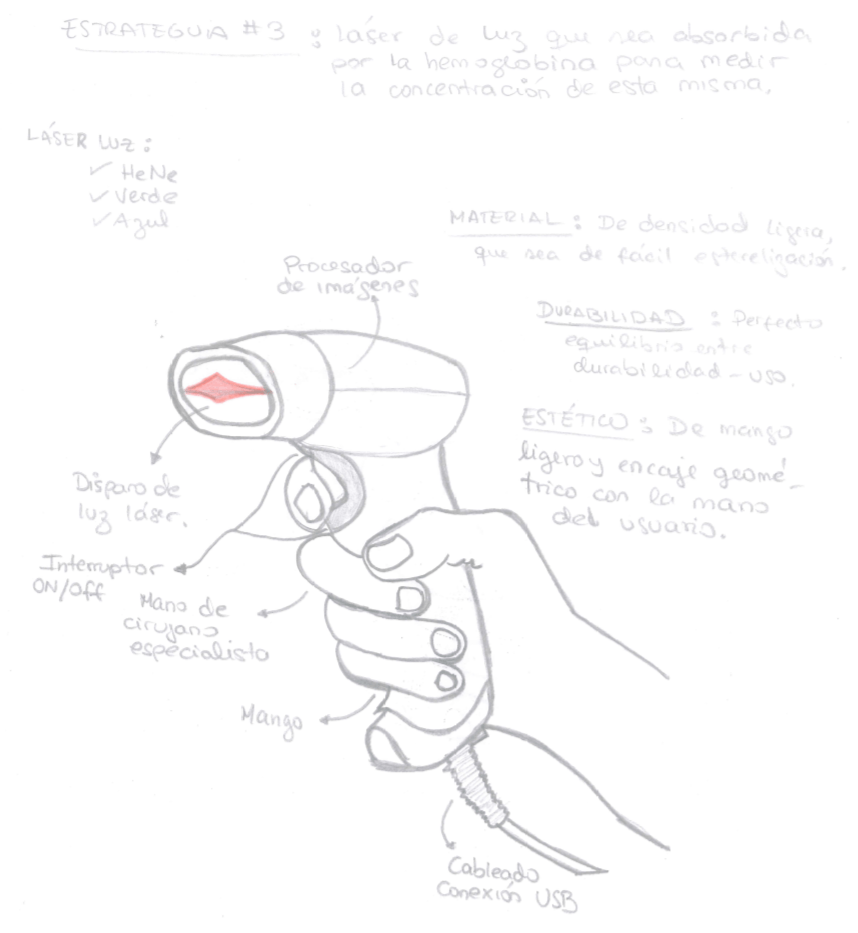 ESTRATEGUIA #3 : láser de luz que sea absorbida
por la hemoglobina para medir
la concentración de esta misma.
LÁSER LUZ :
✓ HeNe
✓ Verde
✓ Azul
MATERIAL : De densidad ligera,
que sea de fácil esterelización.
Procesador
de imágenes
DURABILIDAD : Perfecto
equilibrio entre
durabilidad - uso.
ESTÉTICO : De mango
ligero y encaje geomé-
trico con la mano
del usuario.
Disparo de
luz láser.
Interruptor
ON/OFF
Mano de
cirujano
especialista
Mango
Cableado
Conexión USB